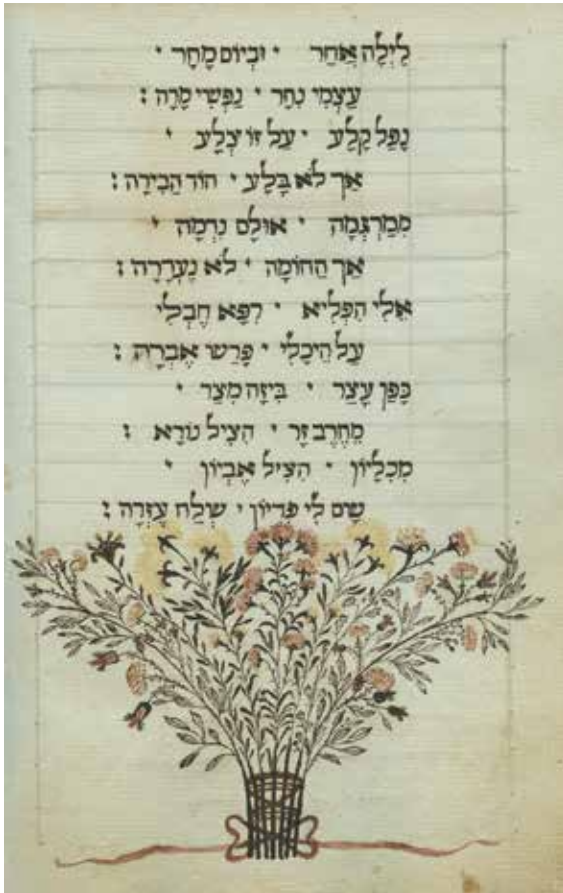 לַיְלָה אַחַר · וּבְיוֹם מָחָר ·
עַצְמִי נִחָר · נַפְשִׁי מָרָה :
נָפַל קֶלַע · עַל זוֹ צֶלַע ·
אַך לֹא בָּלַע · הוֹד הַבִּירָה :
מִמַּרְגֵּמָה · אוּלָם נִרְמָה ·
אַך הַחוֹמָה · לֹא נֶעְרָרָה :
אֵלִי הִפְלִיא · רִפָּא חֶבְלִי
עַל הֵיכָלִי · פָּרַשׂ אֶבְרָה :
כָּפַן עָצַר · בִּיזָה מִצַר ·
מֵחֶרֶב זָר · הִצִיל נוֹרָא :
מִכִּלָיוֹן · הִצִיל אֶבְיוֹן ·
שָׂם לִי פִּדְיוֹן · שָׁלַח עֶזְרָה :